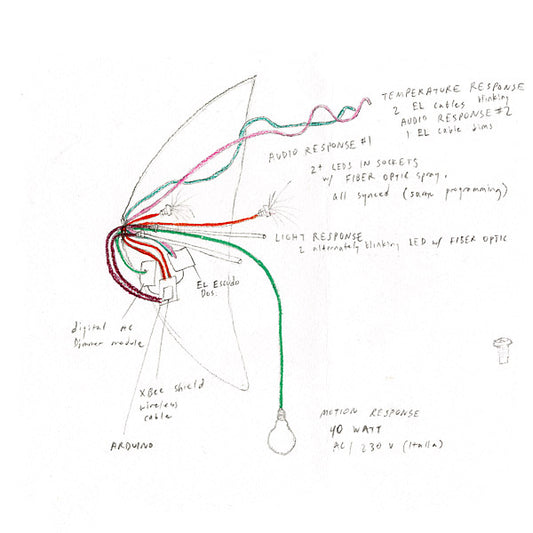 TEMPERATURE RESPONSE
2 EL cables blinking
AUDIO RESPONSE #2
1 EL cable dims
AUDIO RESPONSE #1
2+ LEDS IN SOCKETS
w/ FIBER OPTIC spray,
all synced (same programming)
LIGHT RESPONSE
2 alternately blinking LED w/ FIBER OPTIC
EL Escudo
Dos.
digital AC
Dimmer module
XBee shield
wireless
cable
ARDUINO
MOTION RESPONSE
40 WATT
AC / 230 V (Italia)